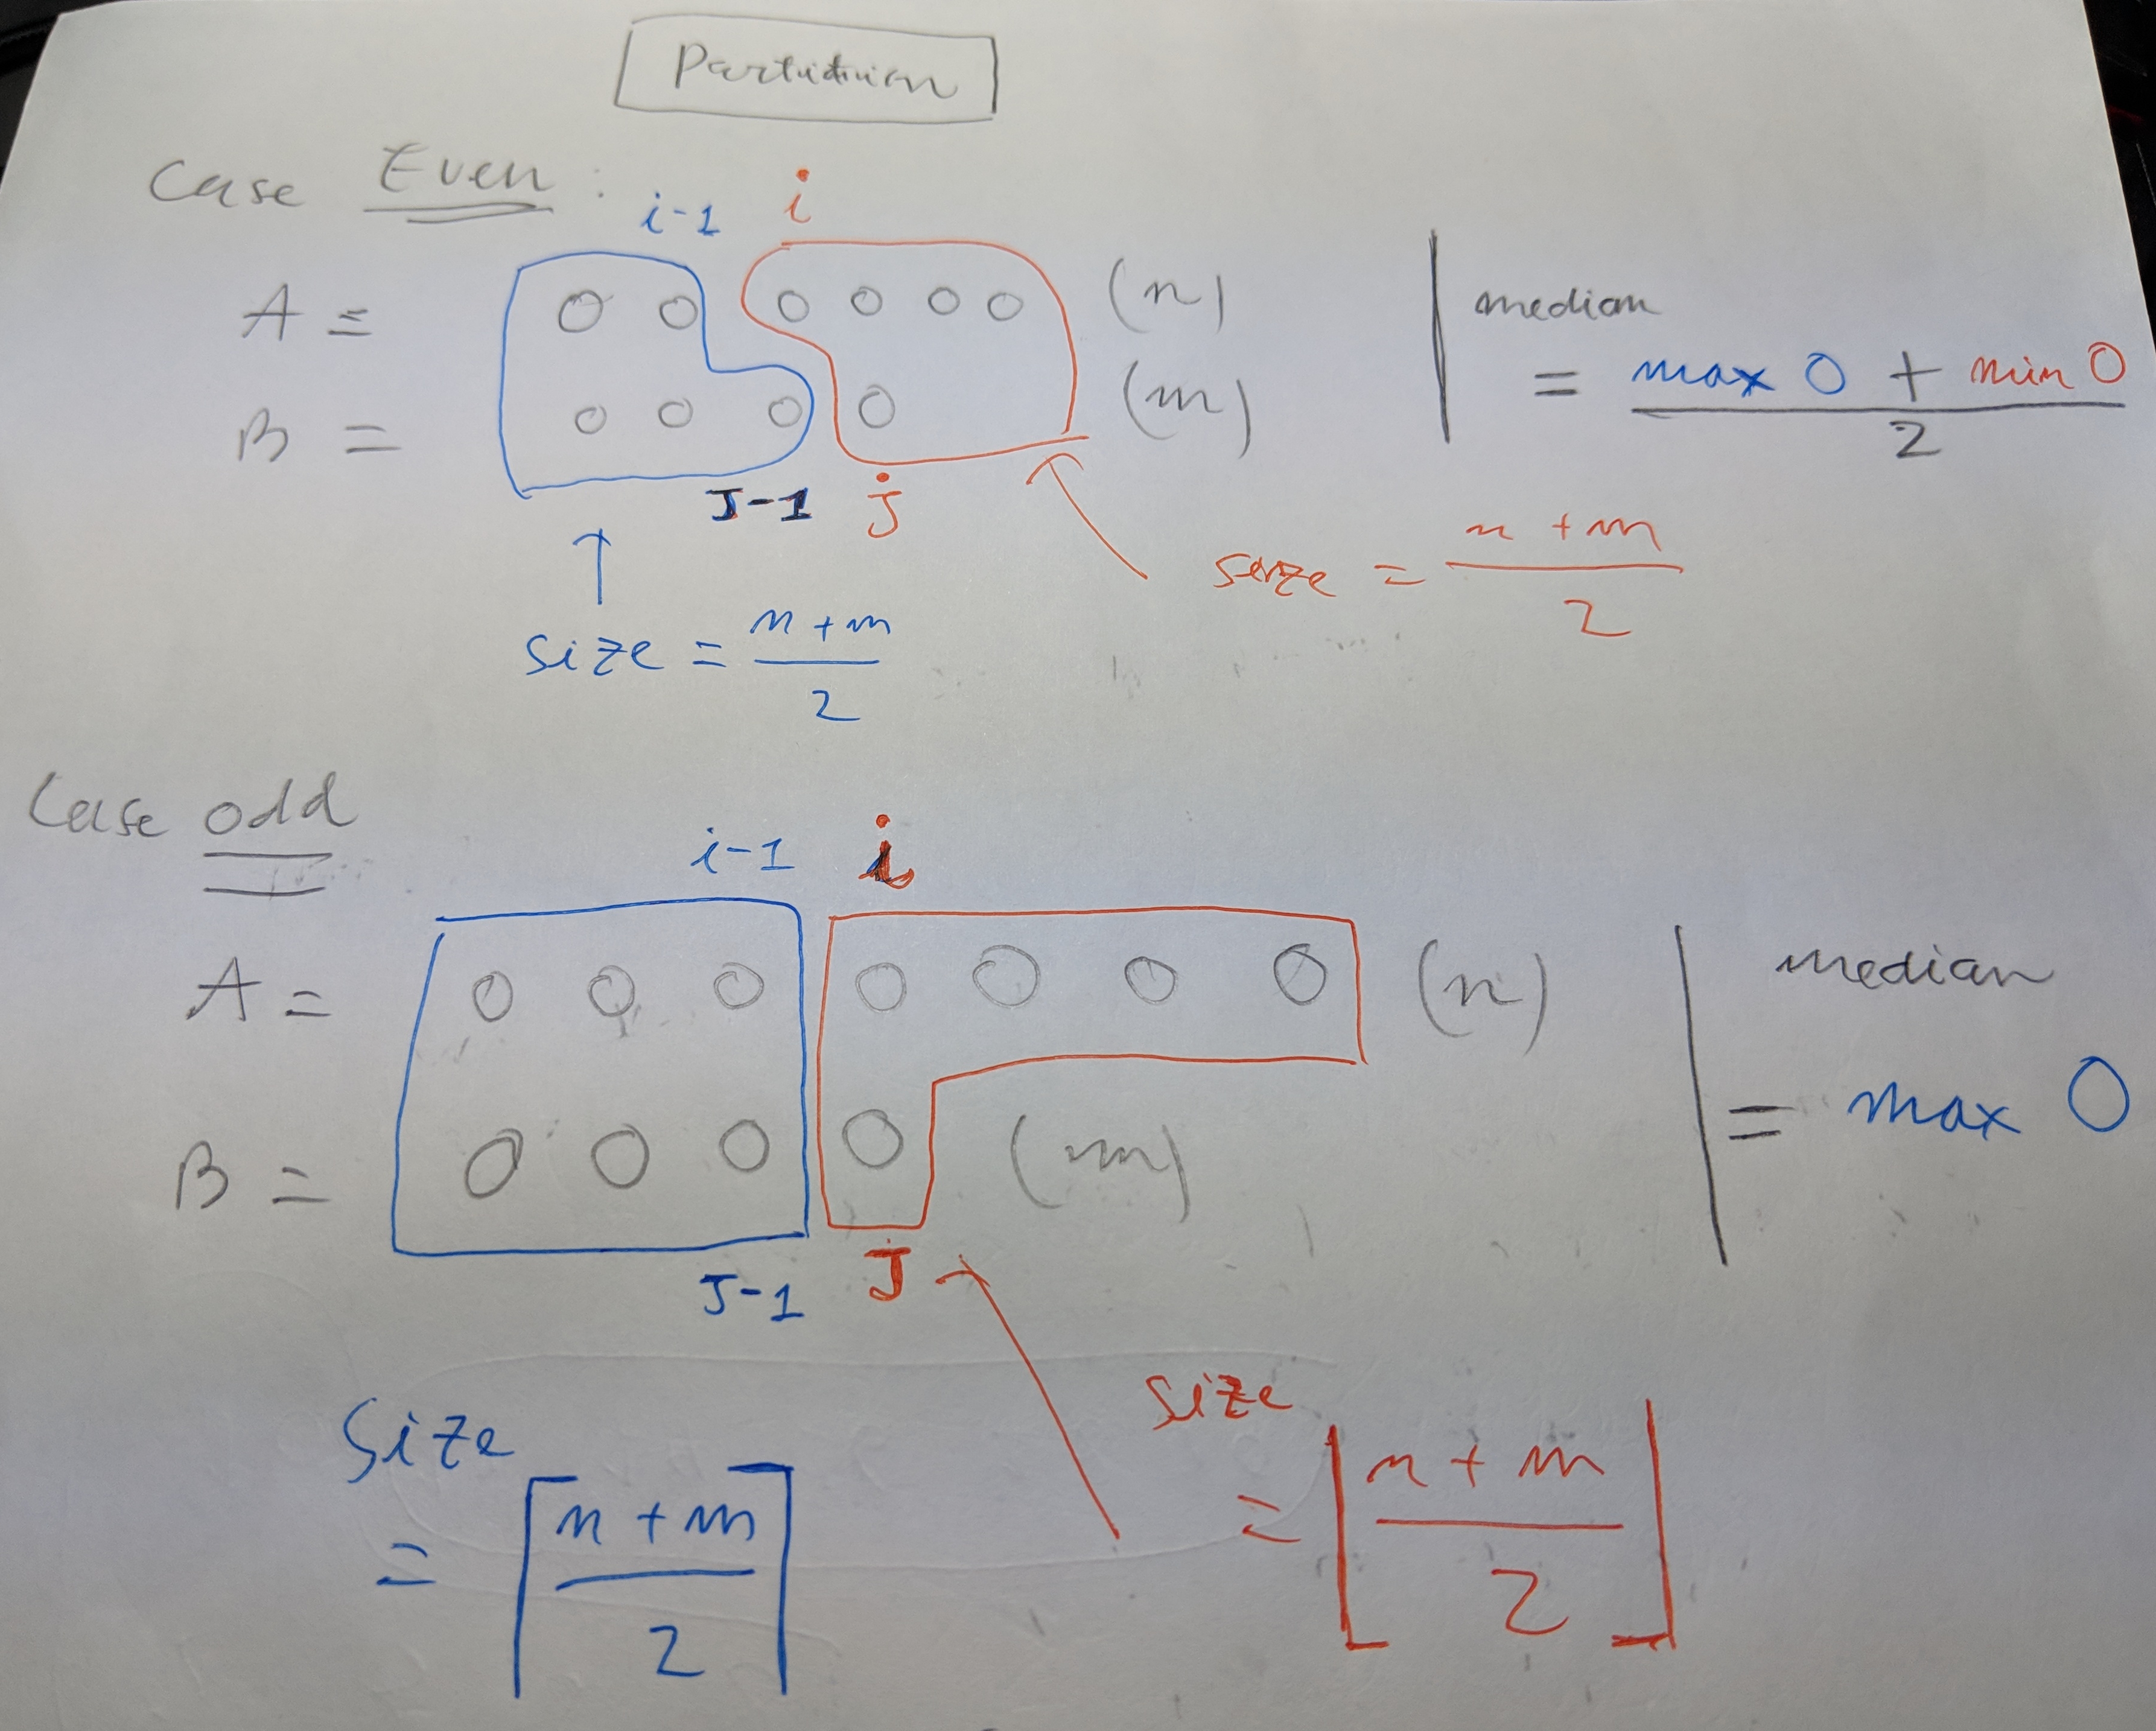 Partition
Case Even :
i-1 i
A = O O O O O O (n)
B = O O O O (m)
J-1 j
median
= max O + min O
2
size = n + m
2
size = n + m
2
Case odd
i-1 i
A = O O O O O O O (n)
B = O O O O (m)
J-1 J
median
= max O
Size
= ⌈ n + m
2 ⌉
size
= ⌊ n + m
2 ⌋